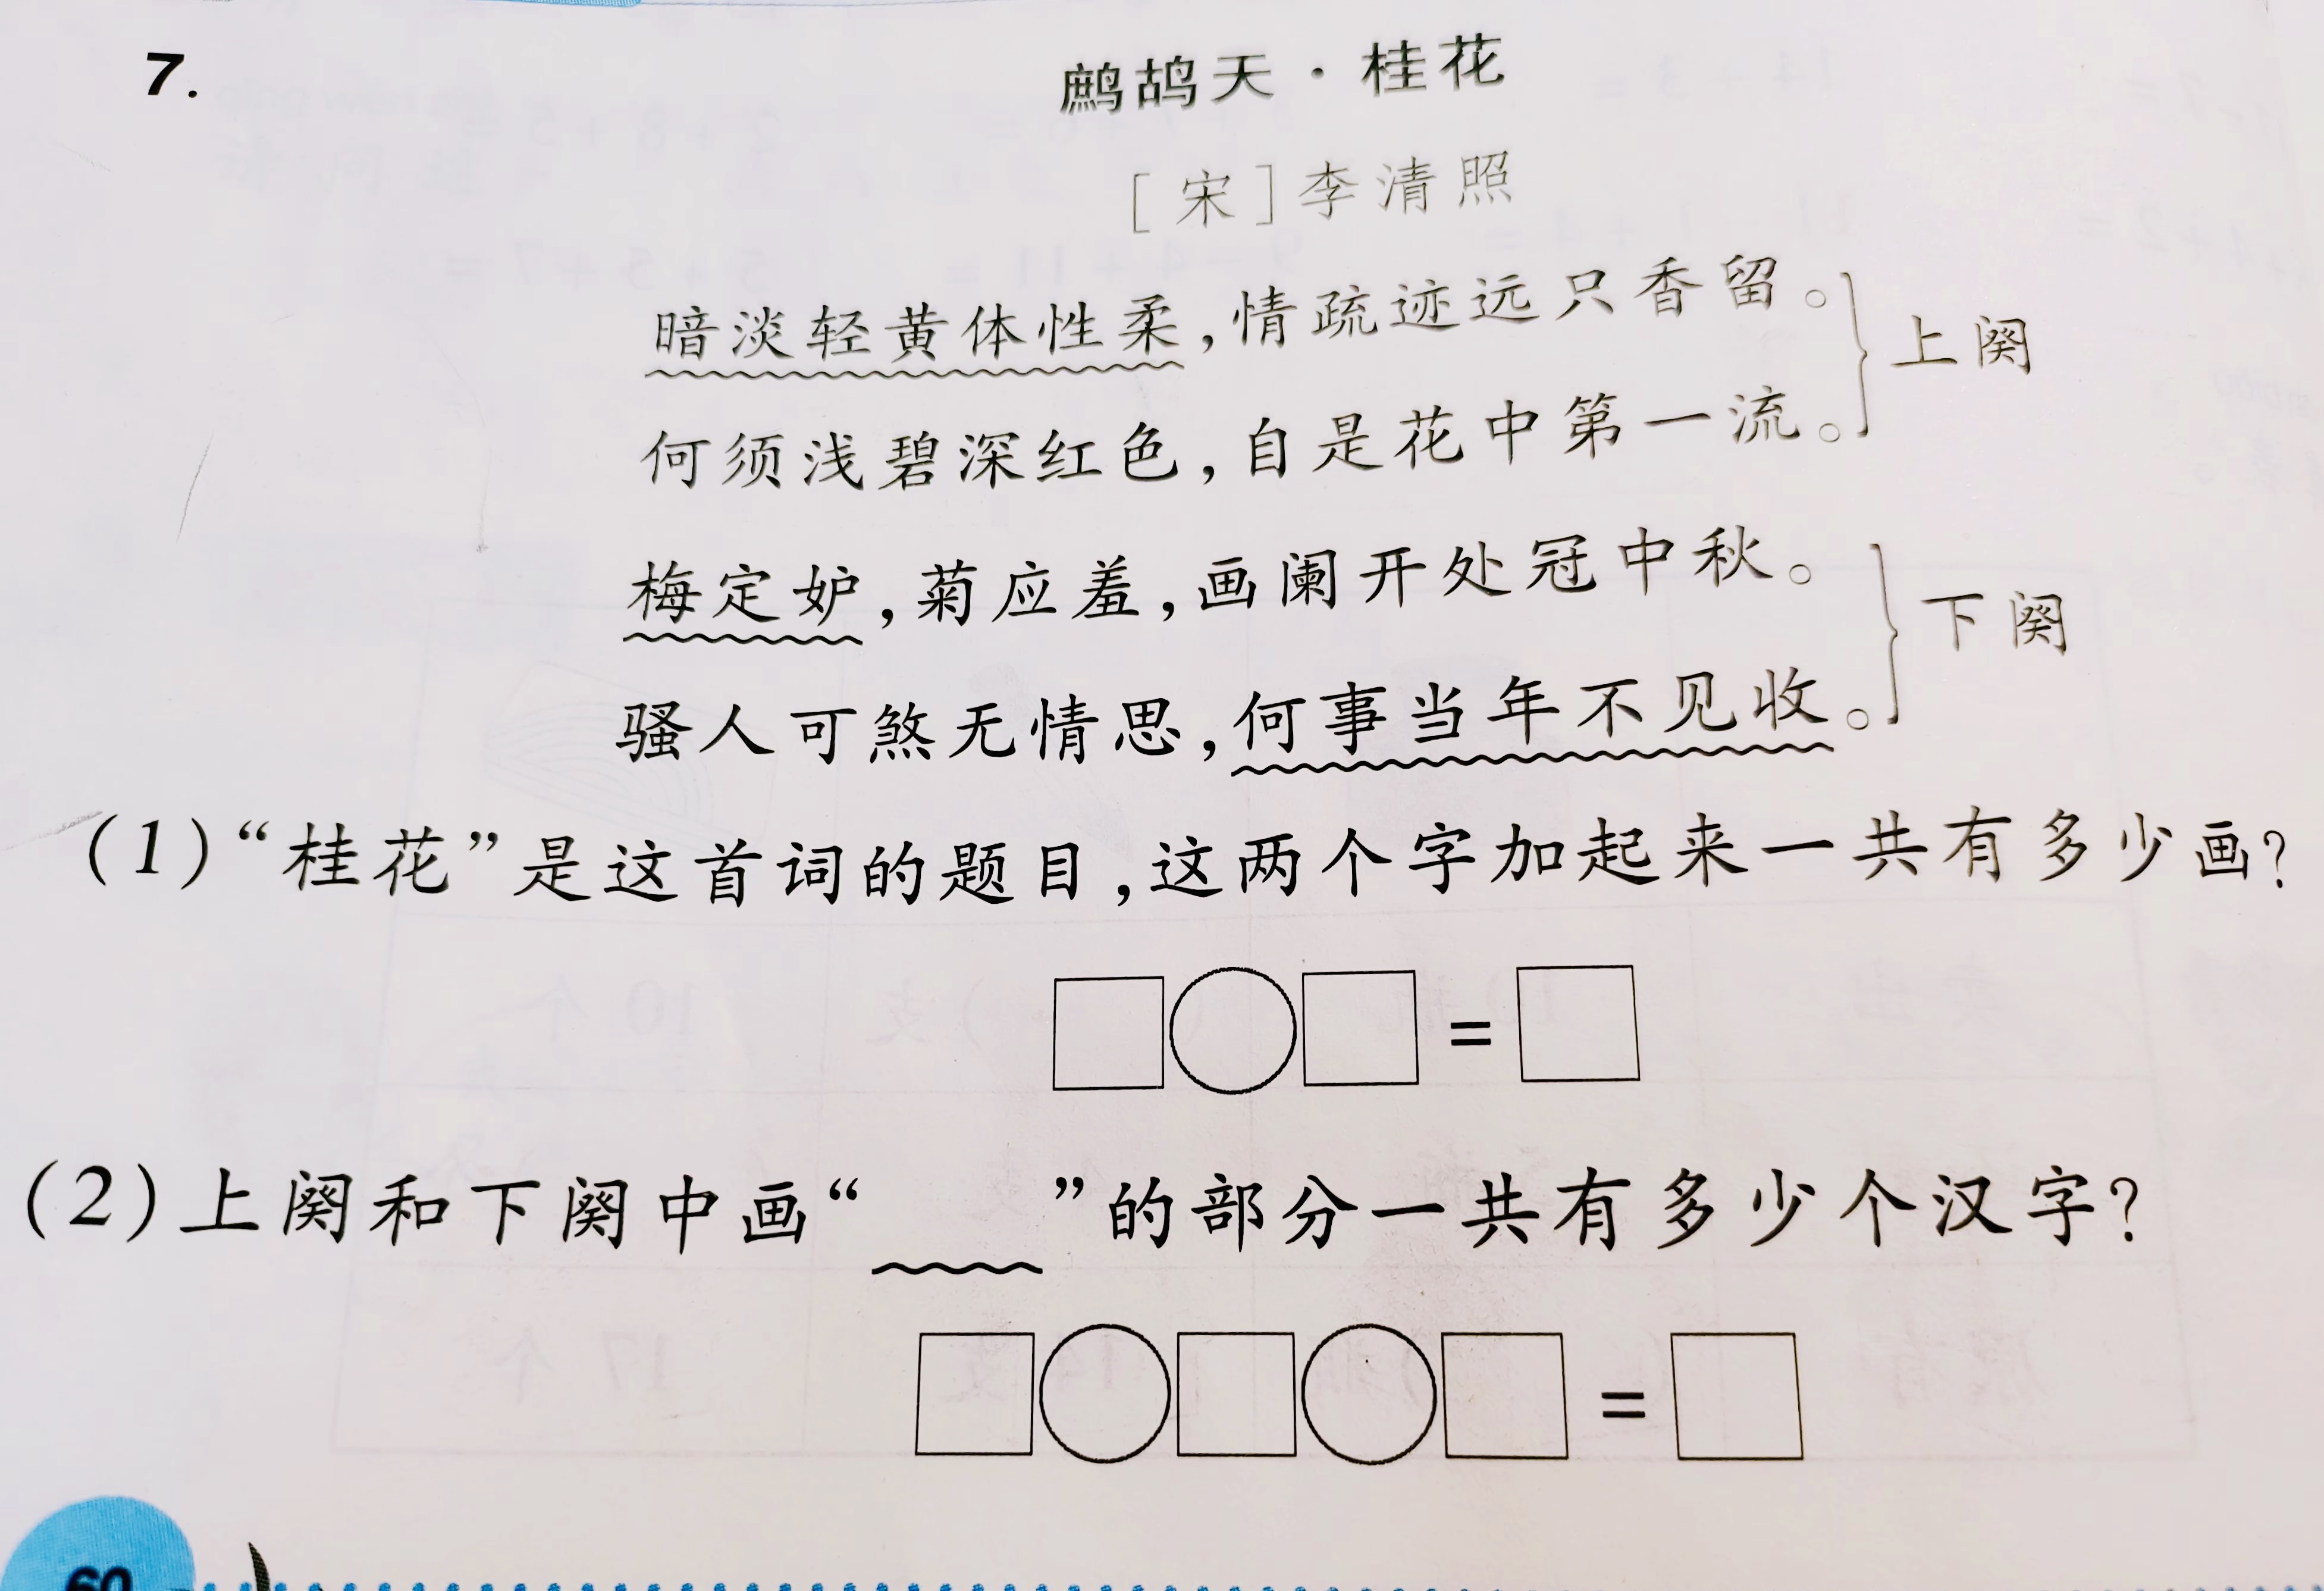 7.
鹧鸪天·桂花
[宋]李清照
暗淡轻黄体性柔,情疏迹远只香留。
何须浅碧深红色,自是花中第一流。
上阕
梅定妒,菊应羞,画阑开处冠中秋。
骚人可煞无情思,何事当年不见收。
下阕
(1)“桂花”是这首词的题目,这两个字加起来一共有多少画?
=
(2)上阕和下阕中画“ ”的部分一共有多少个汉字?
=
60